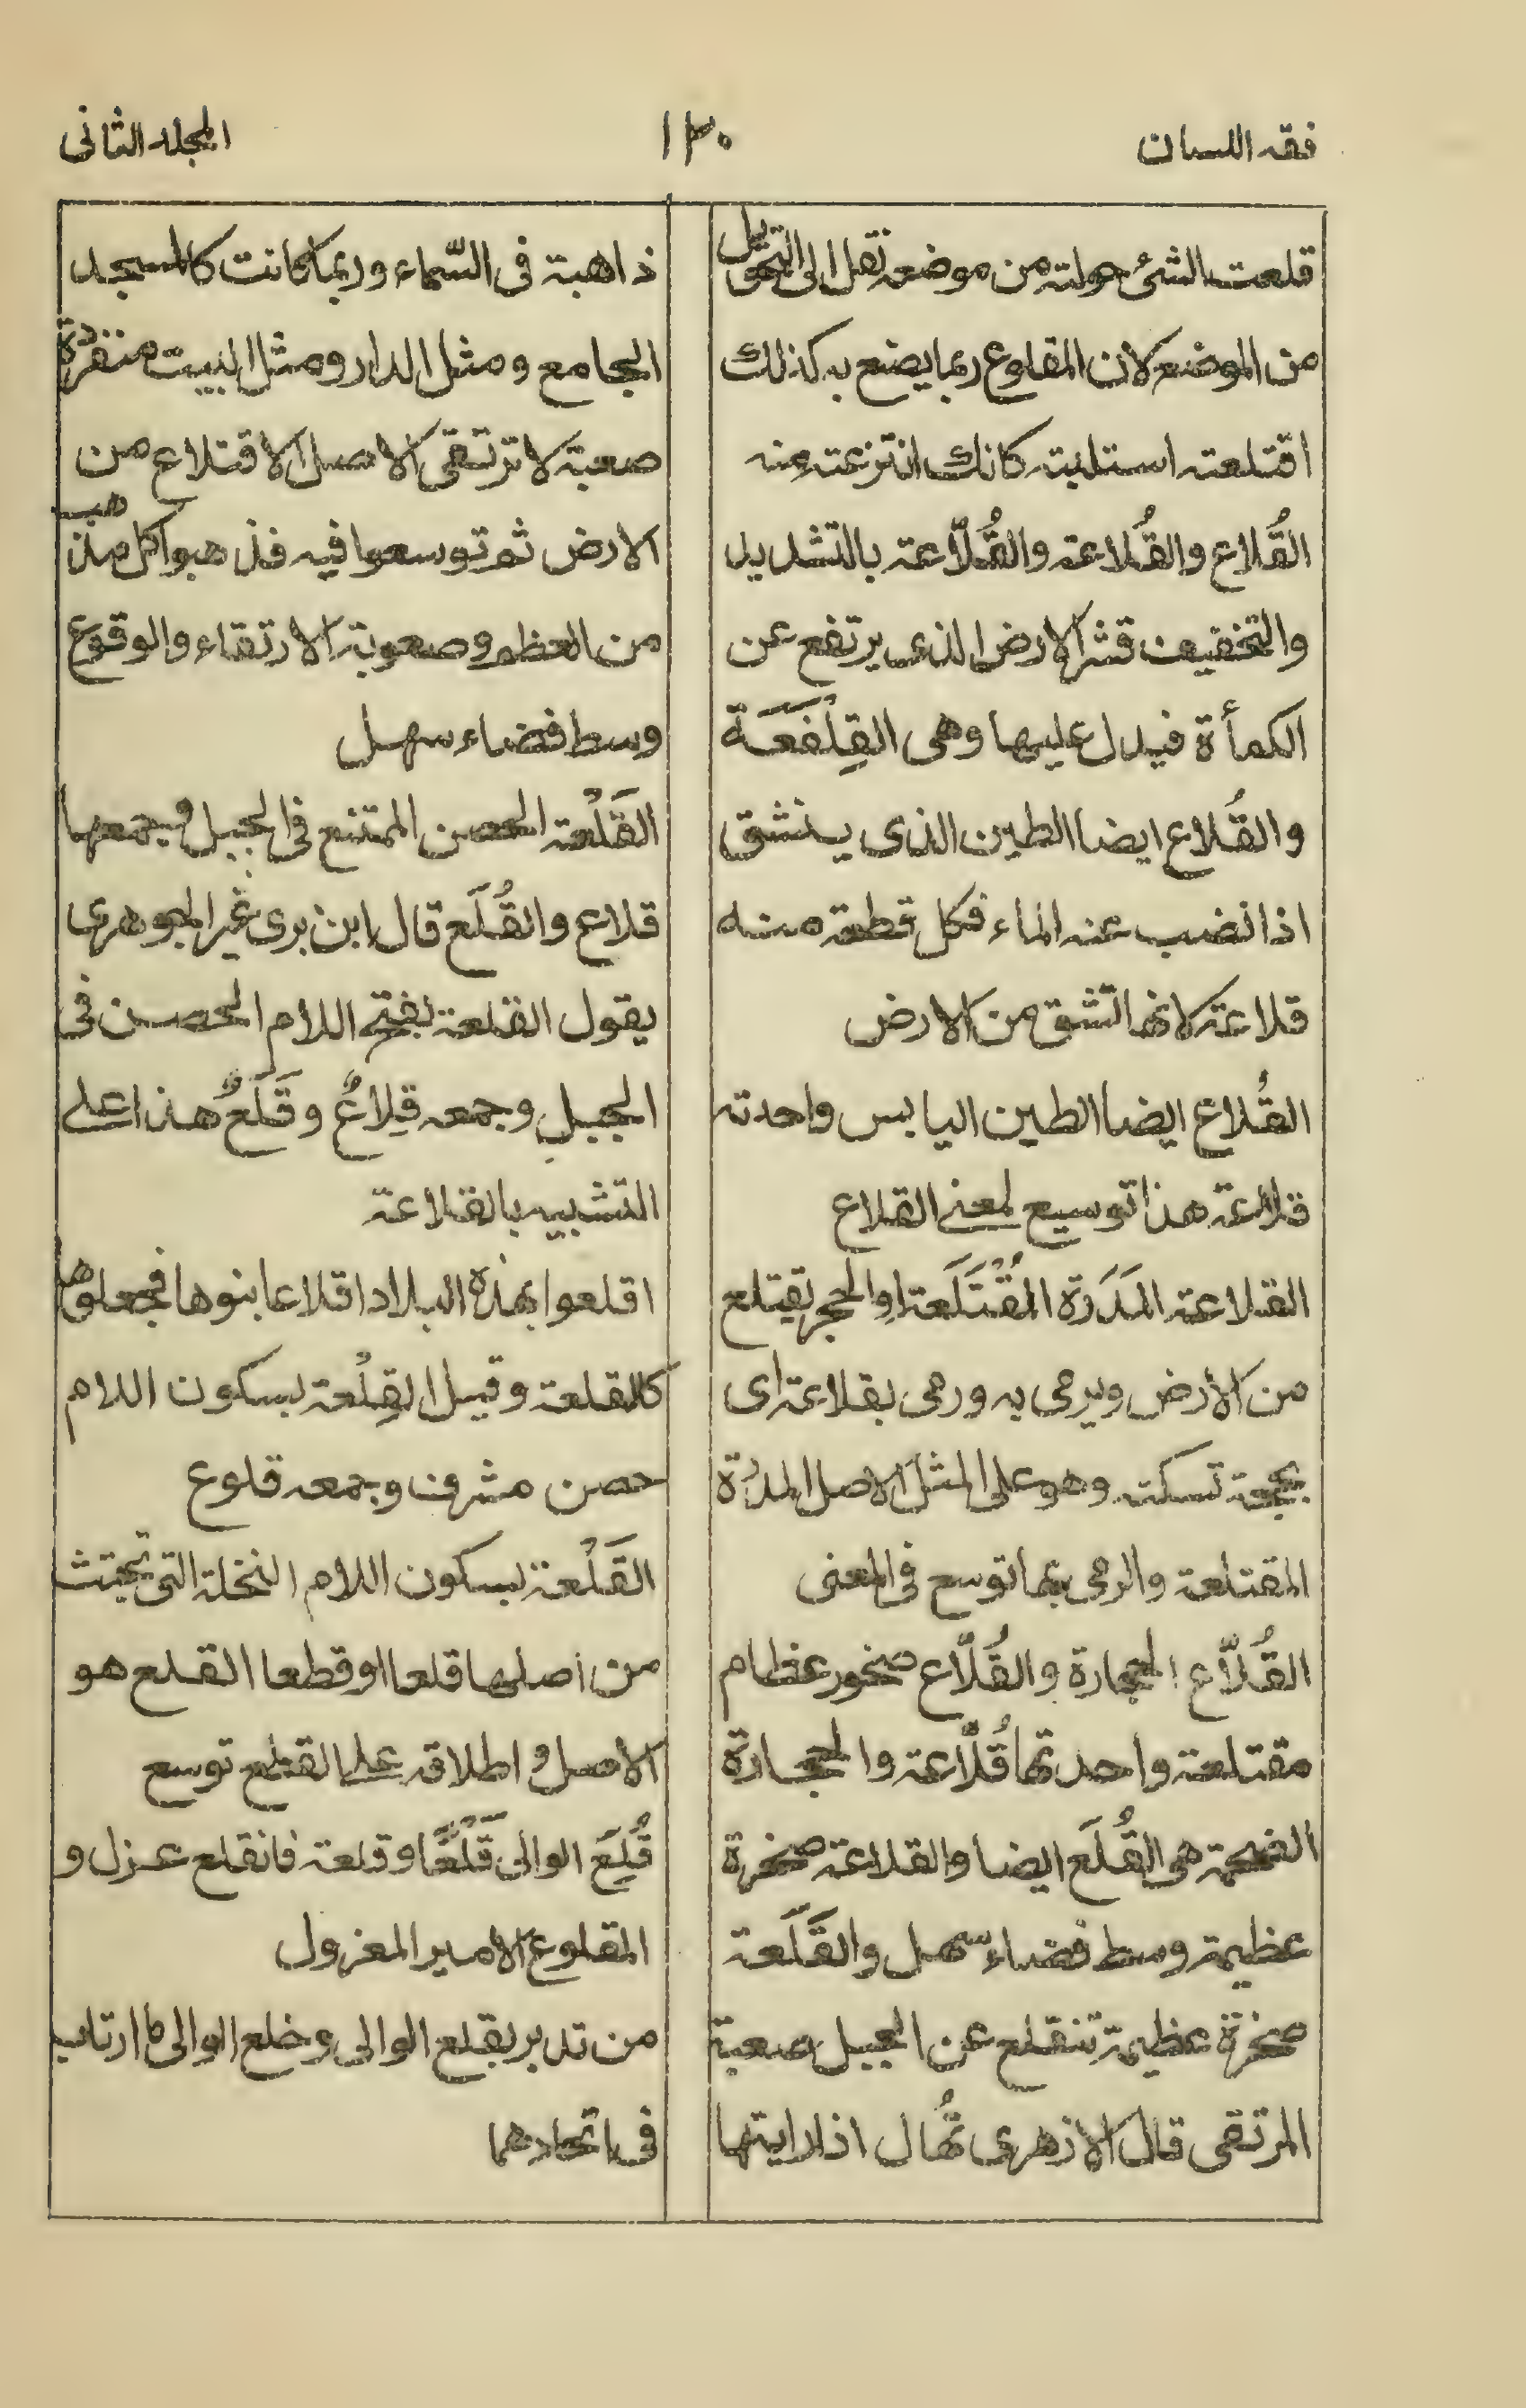 فقه اللسان
١٣٠
المجلد الثانى
قلعت الشئ حولته من موضعه نقل الى التحويل
من الموضع لان المقلوع ربما يصنع به كذلك
اقتلعته استلبته كانك انتزعته منه
القُلاع والقُلاعة والقُلّاعة بالتشديد
والتخفيف قشر الارض الذى يرتفع عن
الكمأة فيدل عليها وهى القِلْفَعَة
والقُلاع ايضا الطين الذى ينشق
اذا نضب عنه الماء فكل قطعة منه
قلاعة كانها تشق من الارض
القُلاع ايضا الطين اليابس واحدته
قلاعة هذا توسيع لمعنى القلاع
القلاعة المَدَرَة المُقْتَلَعة او الحجر يقتلع
من الأرض ويرمى به ورمى بقلاعة اى
بحجة تسكته وهو على المثل الاصل المدرة
المقتلعة والرمى بما توسع فى المعنى
القُلاّع الحجارة والقُلّاع صخور عظام
مقتلعة واحدتها قُلّاعة والحجارة
الضخمة هى القُلَع ايضا والقلاعة صخرة
عظيمة وسط فضاء سهل والقَلَعة
صخرة عظيمة تنقلع عن الجبل صعبة
المرتقى قال الازهرى تُهال اذا رايتها
ذاهبة فى السّماء وربما كانت كالمسجد
الجامع ومثل الدار ومثل البيت منفردة
صعبة لا ترتقى الاصل الاقتلاع من
الارض ثم توسعوا فيه فذهبوا كل مذهب
من العظم وصعوبة الارتقاء والوقوع
وسط فضاء سهل
القَلْعة الحصن الممتنع فى الجبل وجمعها
قلاع والقُلَع قال ابن برى غير الجوهرى
يقول القلعة بفتح اللام الحصن فى
الجبل وجمعه قِلاعٌ وقَلَعٌ هذا على
التشبيه بالقلاعة
اقلعوا بهذه البلاد اقلاعا بنوها فجعلوها
كالقلعة وقيل القِلْعة بسكون اللام
حصن مشرف وجمعه قلوع
القَلْعة بسكون اللام النخلة التى تجتث
من اصلها قلعا او قطعا القلع هو
الاصل واطلاقه على القطع توسع
قُلِعَ الوالى قَلْعًا وقلعة فانقلع عزل و
المقلوع الامير المعزول
من تدبر بقلع الوالى وخلع الوالى ما ارتاب
فى اتحادهما